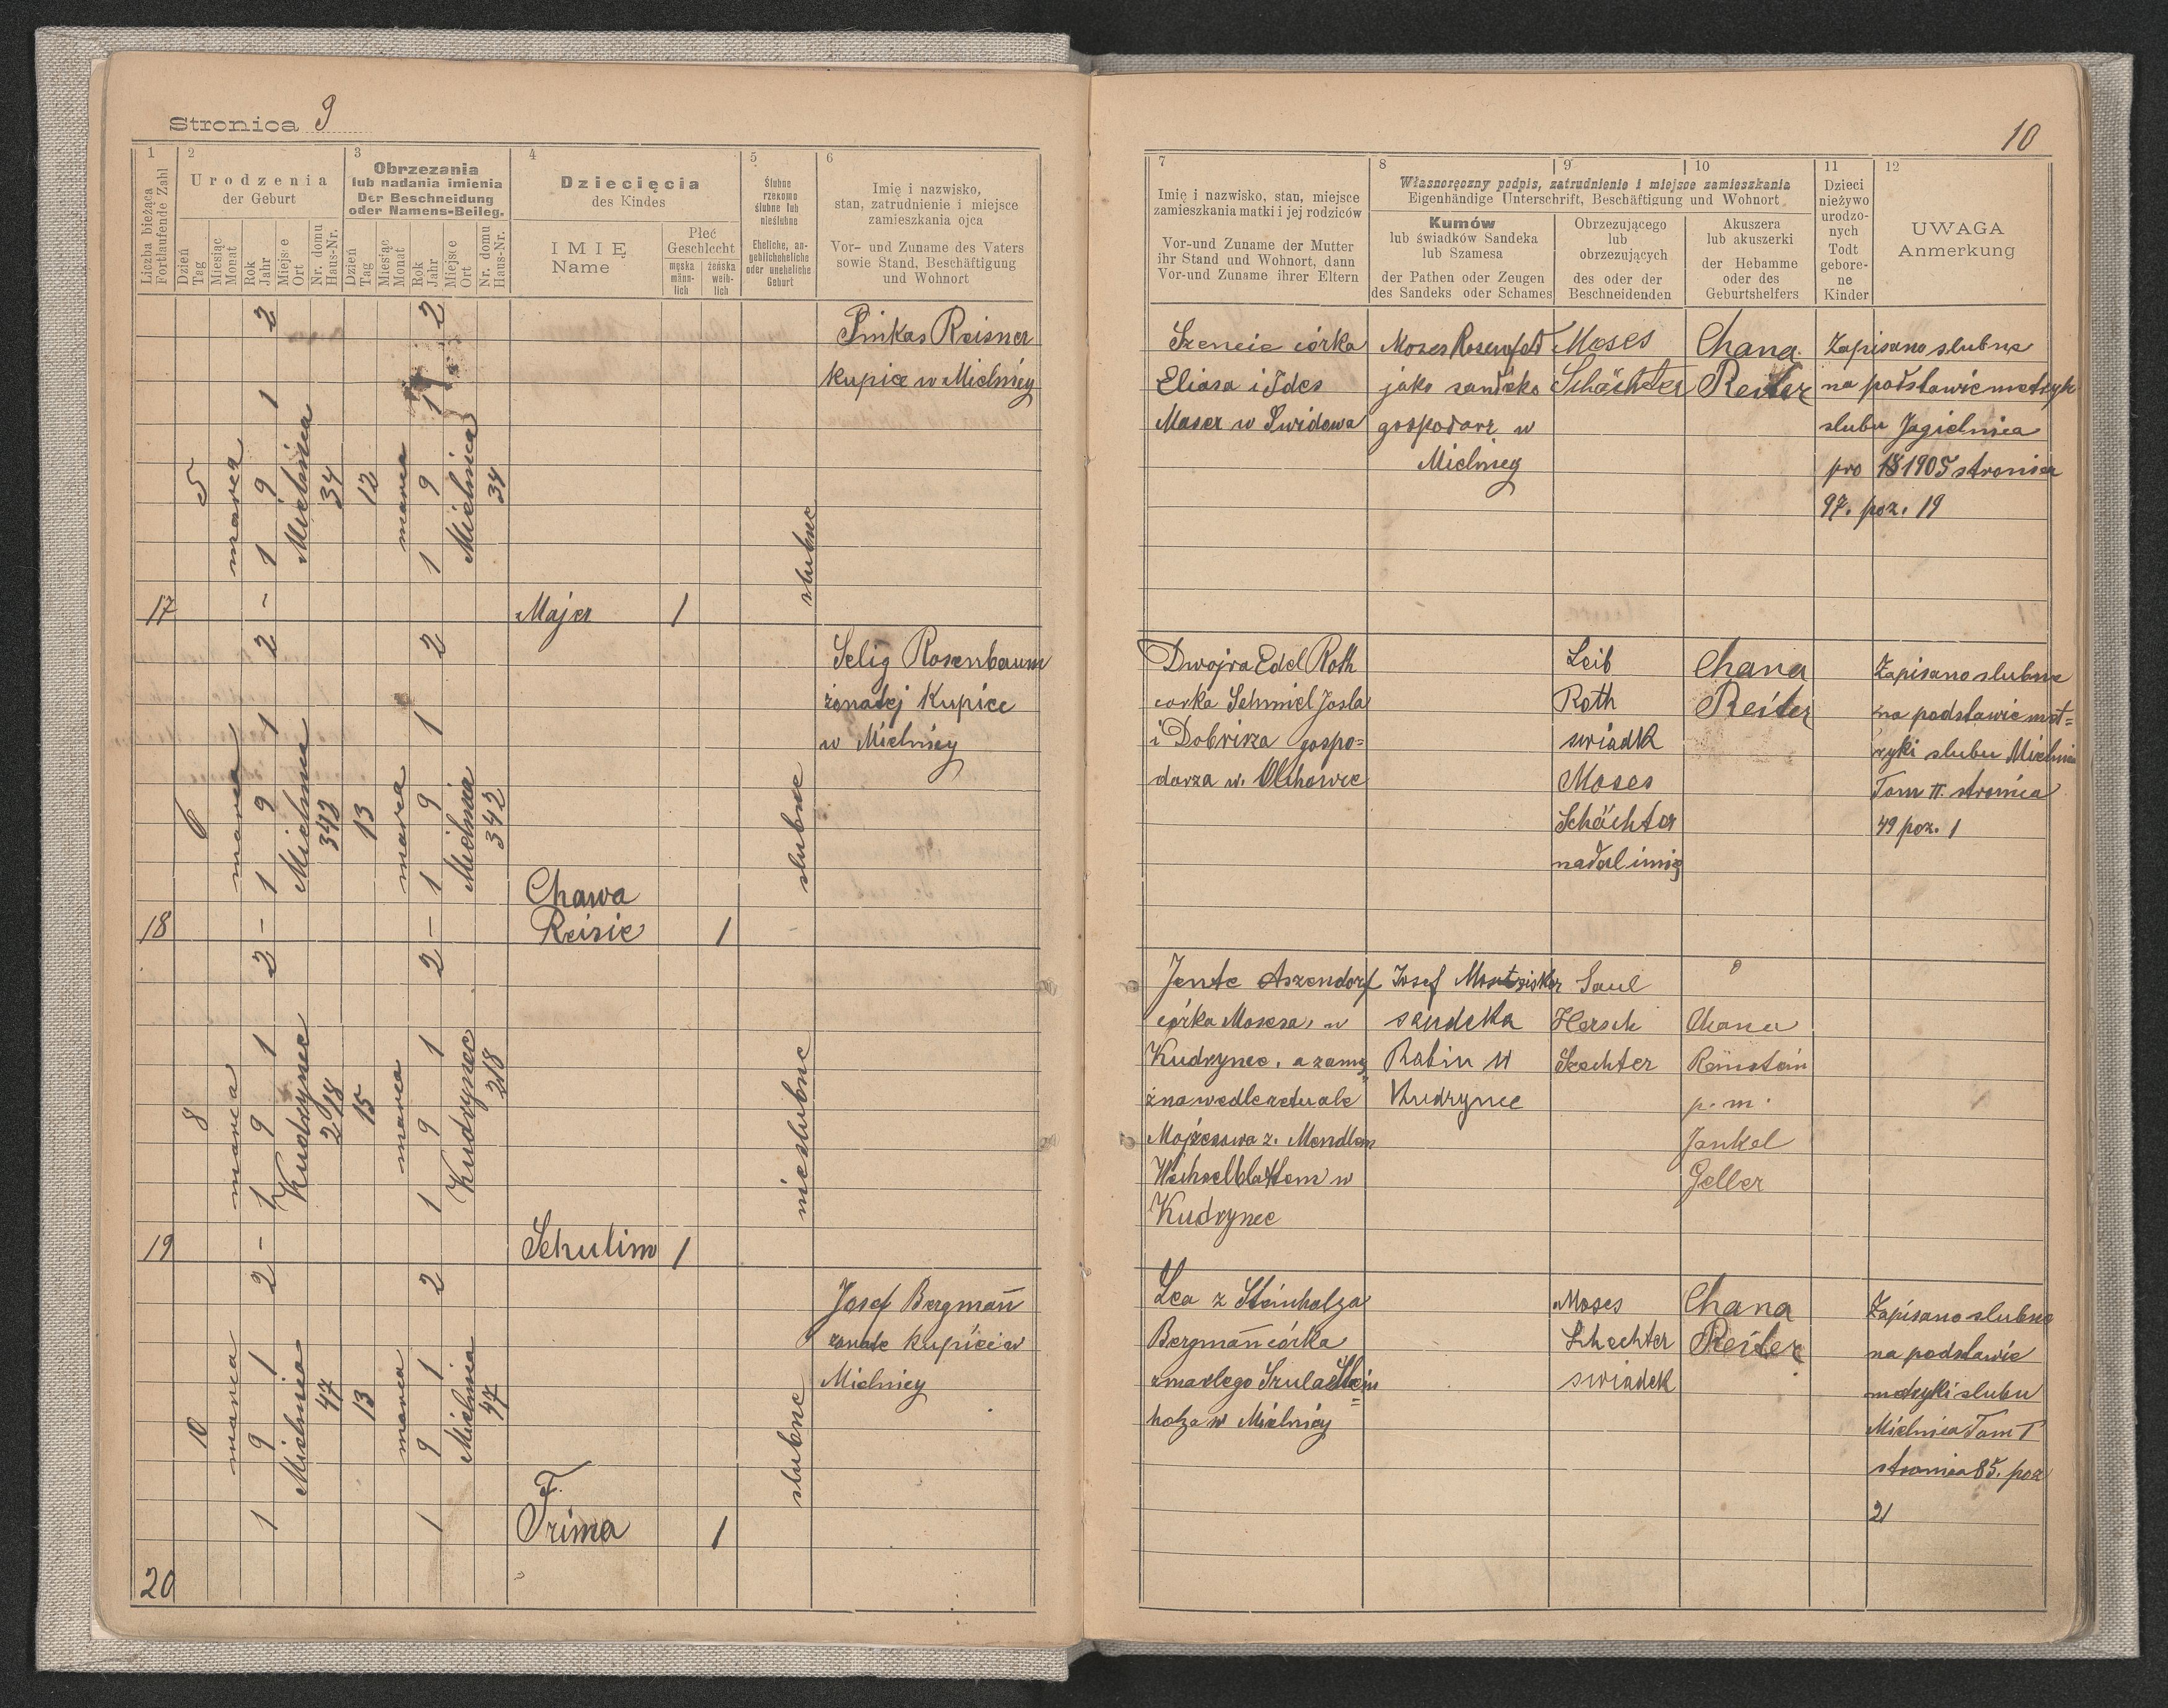 Stronica 9
1
Liczba bieżąca
Fortlaufende Zahl
2
Urodzenia
der Geburt
Dzień
Tag
Miesiąc
Monat
Rok
Jahr
Miejsce
Ort
Nr. domu
Haus-Nr.
3
Obrzezania
lub nadania imienia
Der Beschneidung
oder Namens-Beileg.
Dzień
Tag
Miesiąc
Monat
Rok
Jahr
Miejsce
Ort
Nr. domu
Haus-Nr.
4
Dziecięcia
des Kindes
IMIĘ
Name
Płeć
Geschlecht
męska
männ-
lich
żeńska
weib-
lich
5
Ślubne
rzekomo
ślubne lub
nieślubne
Eheliche, an-
geblicheheliche
oder uneheliche
Geburt
6
Imię i nazwisko,
stan, zatrudnienie i miejsce
zamieszkania ojca
Vor- und Zuname des Vaters
sowie Stand, Beschäftigung
und Wohnort
17
5
marca
1912
Mielnica
34
12
marca
1912
Mielnica
34
Majer
1
slubne
Pinkas Reisner
kupice w Mielnicy
18
6
marca
1912
Mielnica
342
13
marca
1912
Mielnica
342
Chawa
Reisie
1
slubne
Selig Rosenbaum
żonatej Kupice
w Mielnicy
19
8
marca
1912
Kudrynec
218
15
marca
1912
Kudrynec
218
Schulim
1
nieslubne
20
10
marca
1912
Mielnica
47
13
marca
1912
Mielnica
47
F.
Frima
1
slubne
Josef Bergman̄
żonate kupiec w
Mielnicy
10
7
Imię i nazwisko, stan, miejsce
zamieszkania matki i jej rodziców
Vor-und Zuname der Mutter
ihr Stand und Wohnort, dann
Vor-und Zuname ihrer Eltern
8
9
10
Własnoręczny podpis, zatrudnienie i miejsce zamieszkania
Eigenhändige Unterschrift, Beschäftigung und Wohnort
Kumów
lub świadków Sandeka
lub Szamesa
der Pathen oder Zeugen
des Sandeks oder Schames
Obrzezującego
lub
obrzezujących
des oder der
Beschneidenden
Akuszera
lub akuszerki
der Hebamme
oder des
Geburtshelfers
11
Dzieci
nieżywo
urodzo-
nych
Todt
gebore-
ne
Kinder
12
UWAGA
Anmerkung
Szencie córka
Eliasa i Ides
Maser w Swidowa
Moses Rosenfeld
jako sandeko
gospodarz w
Mielnicy
Moses
Schächter
Chana
Reiter
Zapisano slubne
na podstawie metryk
slubu Jagielnica
pro 1905 stronica
97. poz. 19
Dwojra Edel Roth
corka Schmiel Josla
i Dobrisza gospo=
darza w. Olchowce
Leib
Roth
swiadk
Moses
Schächter
nadal imię
Chana
Reiter
Zapisano slubne
na podstawie met=
ryki slubu Mielnica
Tom II. stronica
49 poz. 1
Jente Aszendorf
córka Mosesa, w
Kudrynec, a zamę
żna wedle retuale
Mojzesowa z. Mendlem
Wechselblattem w
Kudrynec
Josef
sandeka
Rabin w
Kudrynec
Saul
Hersch
Szechter
Chana
Reinstein
p. m.
Jankel
Geller
Lea z Steinholza
Bergman̄ córka
zmarlego Szula Stein=
holza w Mielnicy
Moses
Schechter
swiadek
Chana
Reiter
Zapisano slubne
na podstawie
metryki slubu
Mielnica Tom I
stronica 85. poz
21